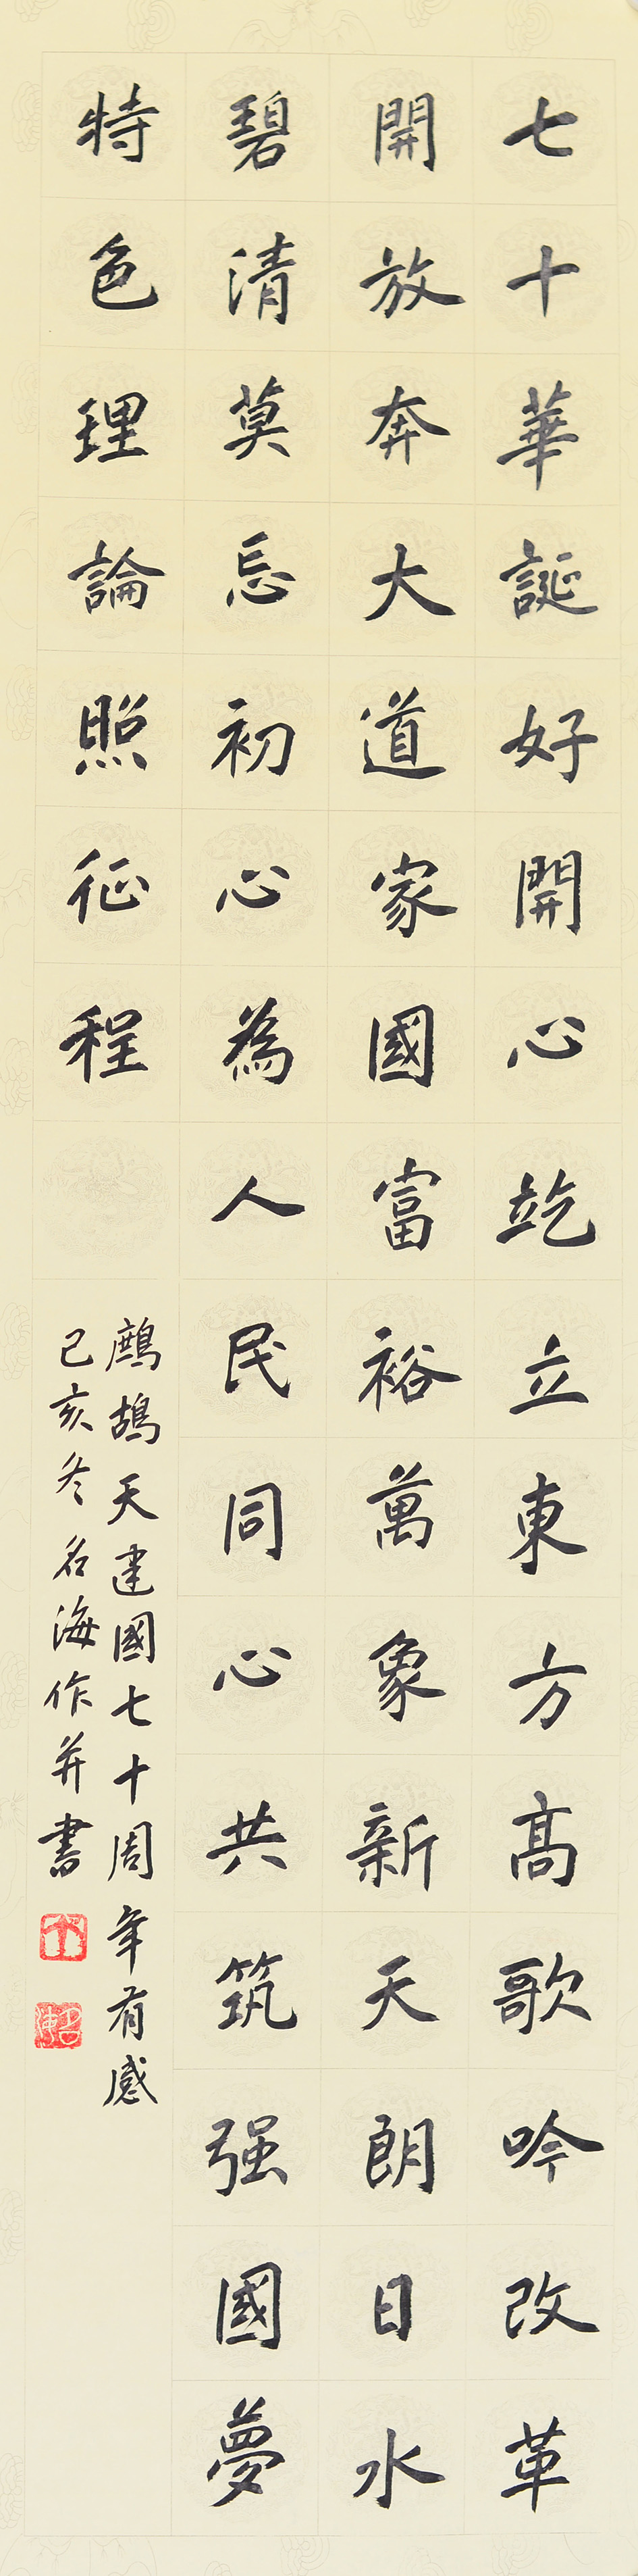 七十華誕好開心屹立東方高歌吟改革
開放奔大道家國富裕萬象新天朗日水
碧清莫忘初心為人民同心共筑强國夢
特色理論照征程
鷓鴣天建國七十周年有感
己亥冬名海作并書